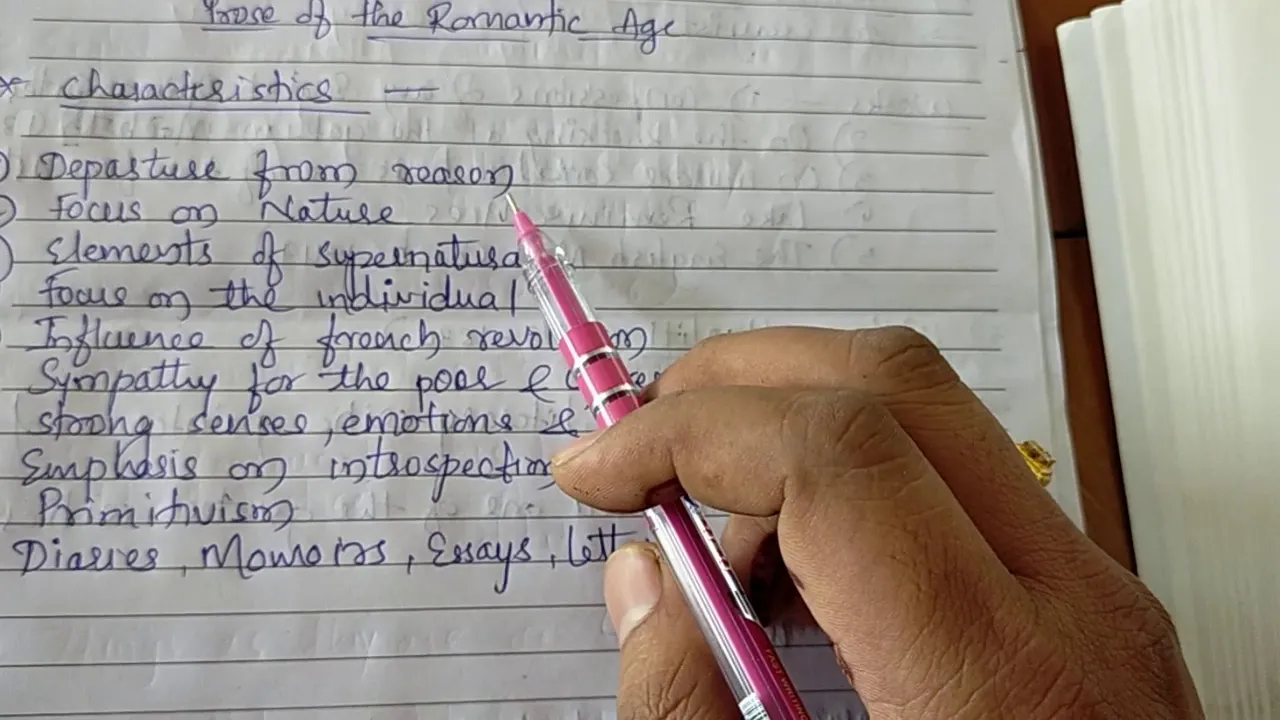 Prose of the Romantic Age
* Characteristics —
Departure from reason
Focus on Nature
Elements of supernatura
Focus on the individual
Influence of french revol
Sympathy for the poor &
strong senses, emotions &
Emphasis on introspection
Primitivism
Diaries, Momoirs, Essays, lett
FAST WRITING